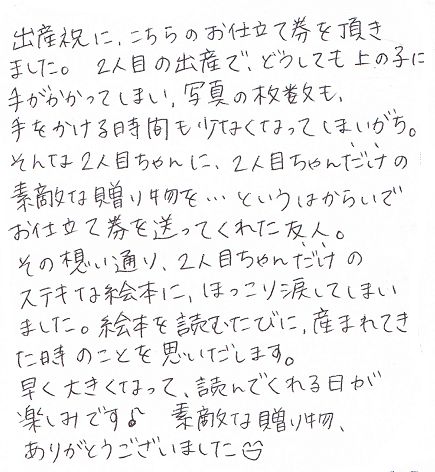 出産祝に、こちらのお仕立て券を頂き
ました。2人目の出産で、どうしても上の子に
手がかかってしまい、写真の枚数も、
手をかける時間も少なくなってしまいがち。
そんな2人目ちゃんに、2人目ちゃんだけの
素敵な贈り物を…というはからいで
お仕立て券を送ってくれた友人。
その想い通り、2人目ちゃんだけの
ステキな絵本に、ほっこり涙してしまい
ました。絵本を読むたびに、産まれてき
た時のことを思いだします。
早く大きくなって、読んでくれる日が
楽しみです♪ 素敵な贈り物、
ありがとうございました